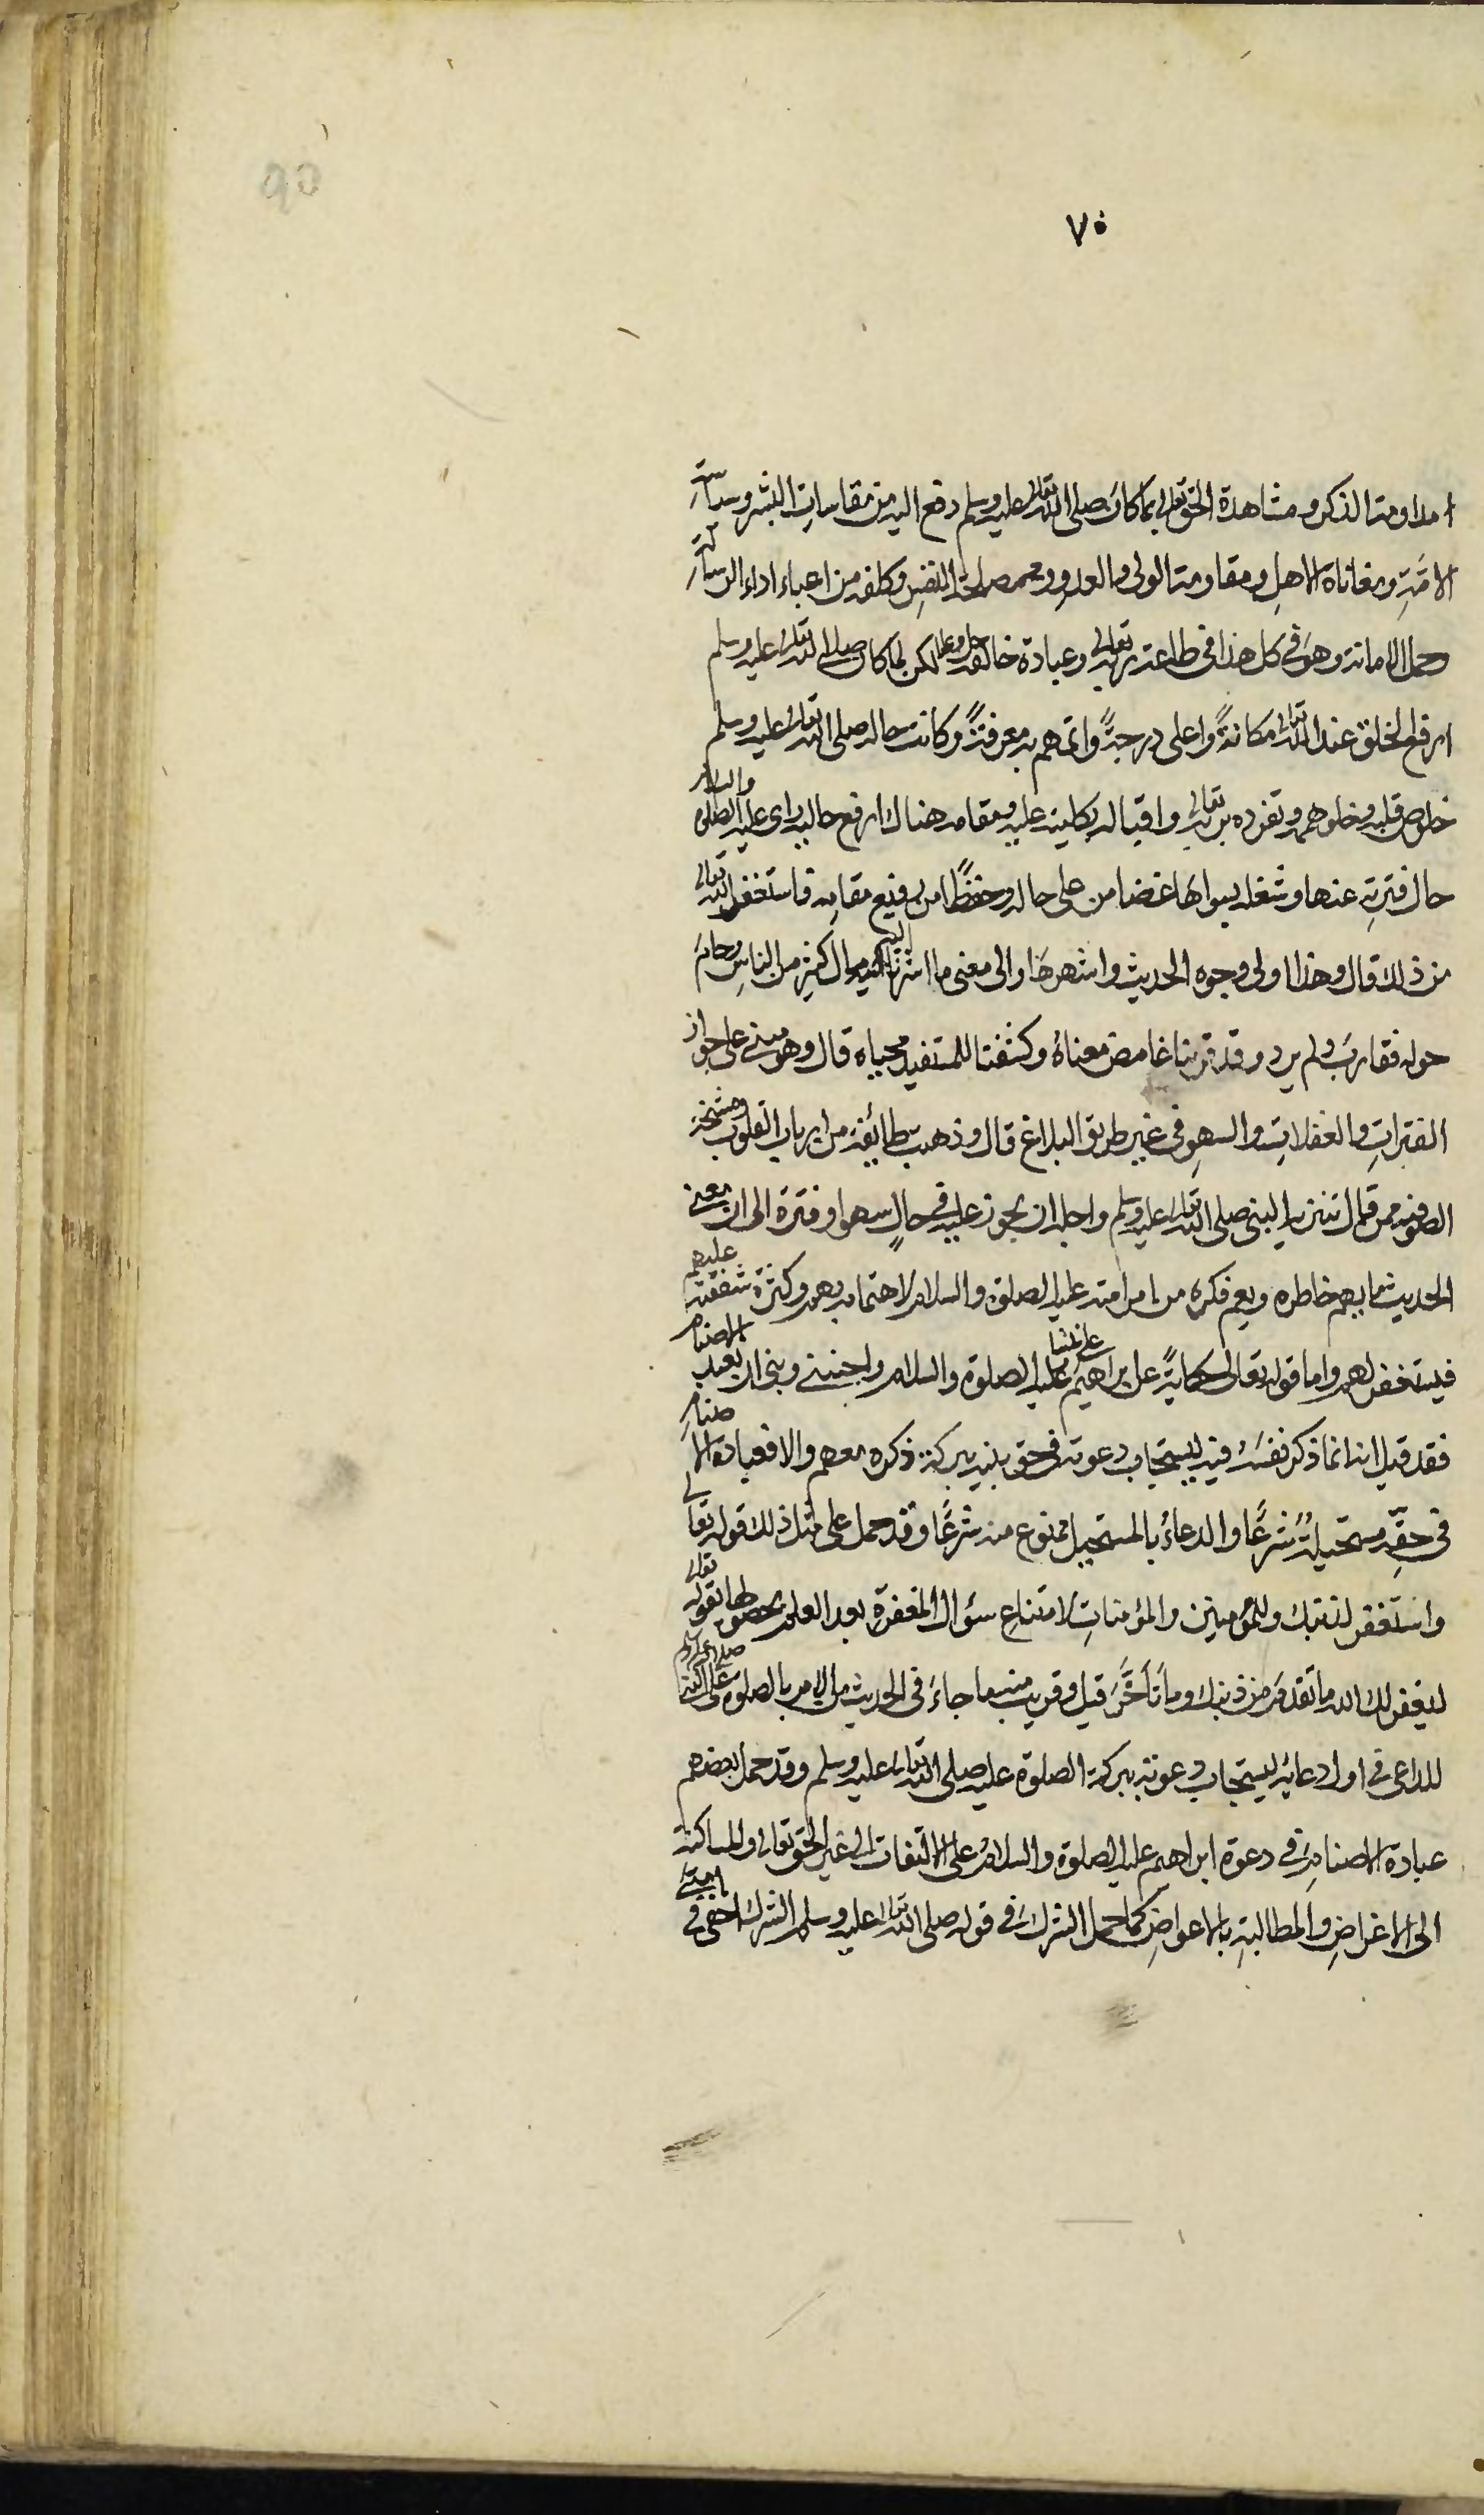 ٧٥
90
امداومة الذكر ومشاهدة الحق تعالى بما كان صلى الله تعالى عليه وسلم دفع اليه من مقاسات البشر وسياسة
الامّةِ ومعاناة الاهلِ ومقاومة الولى والعدوِ ومصلحة النفسِ وكلفه من اعباء اداء الرسالة
حمل الامانة وهو في كل هذا في طاعة ربه تعالى وعبادة خالقه جل وعلا لكن لما كان صلى الله تعالى عليه وسلم
ارفع الخلق عند الله تعالى مكانةً واعلى درجةً واتمهم به معرفةً وكانت حاله صلى الله تعالى عليه وسلم
خلوص قلبه وخلو همه وتفرده بربه تعالى واقباله بكليته عليه ومقامه هنالك ارفع حاليه راى عليه الصلوة والسلام
حال فترتِه عنها وشغله بسواها غضا من على حاله وخفضًا من رفيع مقامه فاستغفر الله تعالى
من ذلك قال وهذا اولى وجوه الحديث واشهرها والى معنى ما اشرنا اليه مال كثير من الناسِ وحامَ
حوله فقاربَ ولم يرد وقد قربنا غامض معناهُ وكشفنا للمستفيد محياه قال وهو مبنى على جواز
الفتراتِ والغفلاتِ والسهوِ في غير طريق البلاغ قال وذهب طائفة من ارباب القلوب ومشيخة
الصوفيه ممن قال تنزيه النبى صلى الله تعالى عليه وسلم واجله ان يجوز عليه في حالٍ سهو او فترة الى ان معنى
الحديث ما يهم خاطره ويغم فكره من امر امته عليه الصلوة والسلام لاهتمامه بهم وكثرة شفقته عليهم
فيستغفر لهم واما قوله تعالى حكايةً عن ابراهيم على نبينا عليه الصلوة والسلام واجنبنى وبنى ان نعبد الاصنام
فقد قيل انه انما ذكر نفسَه فيه ليستجاب دعوته في حق بنيه ببركة ذكره معهم والا فعبادة الاصنامِ
في حقِّه مستحيلةٌ شرعًا والدعاءُ بالمستحيل ممنوع منه شرعًا وقد حمل على مثل ذلك قوله تعالى
واستغفر لذنبك وللمؤمنين والمؤمناتِ لامتناعِ سؤال المغفرة بعد العلم بحصولها بقوله تعالى
ليغفر لك الله ما تقدم من ذنبك وما تأخّرَ قيل وقريب منه ما جاءَ في الحديث من الامر بالصلوة على النبى صلى الله عليه وسلم
للداعى في اول دعائه ليستجاب دعوته ببركة الصلوة عليه صلى الله تعالى عليه وسلم وقد حمل بعضهم
عبادة الاصنامِ في دعوة ابراهيم عليه الصلوة والسلام على الالتفات الى غير الحق تعالى والمساكنة
الى الاغراضِ والمطالبةِ بالاعواضِ كما حمل الشرك في قوله صلى الله تعالى عليه وسلم الشرك اخفى في